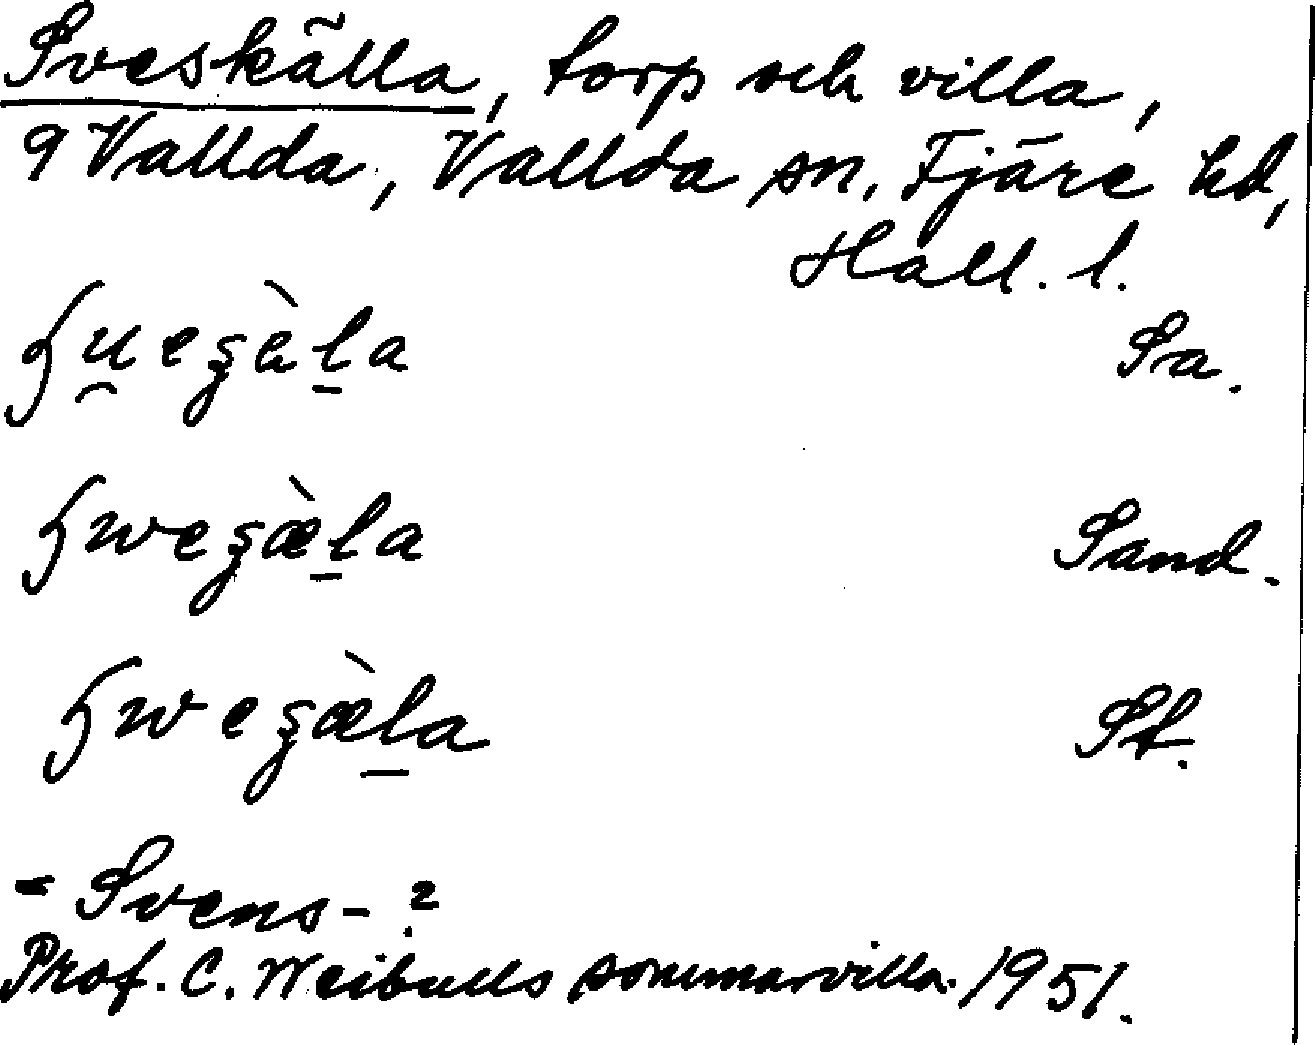 Sveskälla, torp och villa,
9 Vallda, Vallda sn, Fjäre hd,
Hall. l.
Sa.
Sand.
St.
= Svens- ?
Prof. C. Weibulls sommarvilla. 1951.